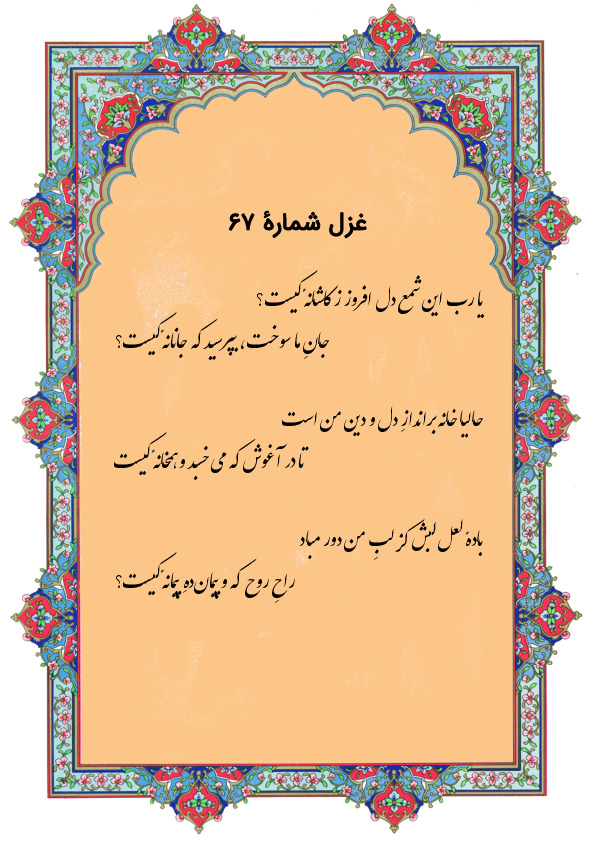 غزل شمارهٔ ۶۷
یا رب این شمع دل افروز ز کاشانهٔ کیست؟
جانِ ما سوخت، بپرسید که جانانهٔ کیست؟
حالیا خانه براندازِ دل و دین من است
تا در آغوش که می خسبد و همخانهٔ کیست
بادهٔ لعل لبش کز لبِ من دور مباد
راحِ روح که و پیمان دهِ پیمانهٔ کیست؟